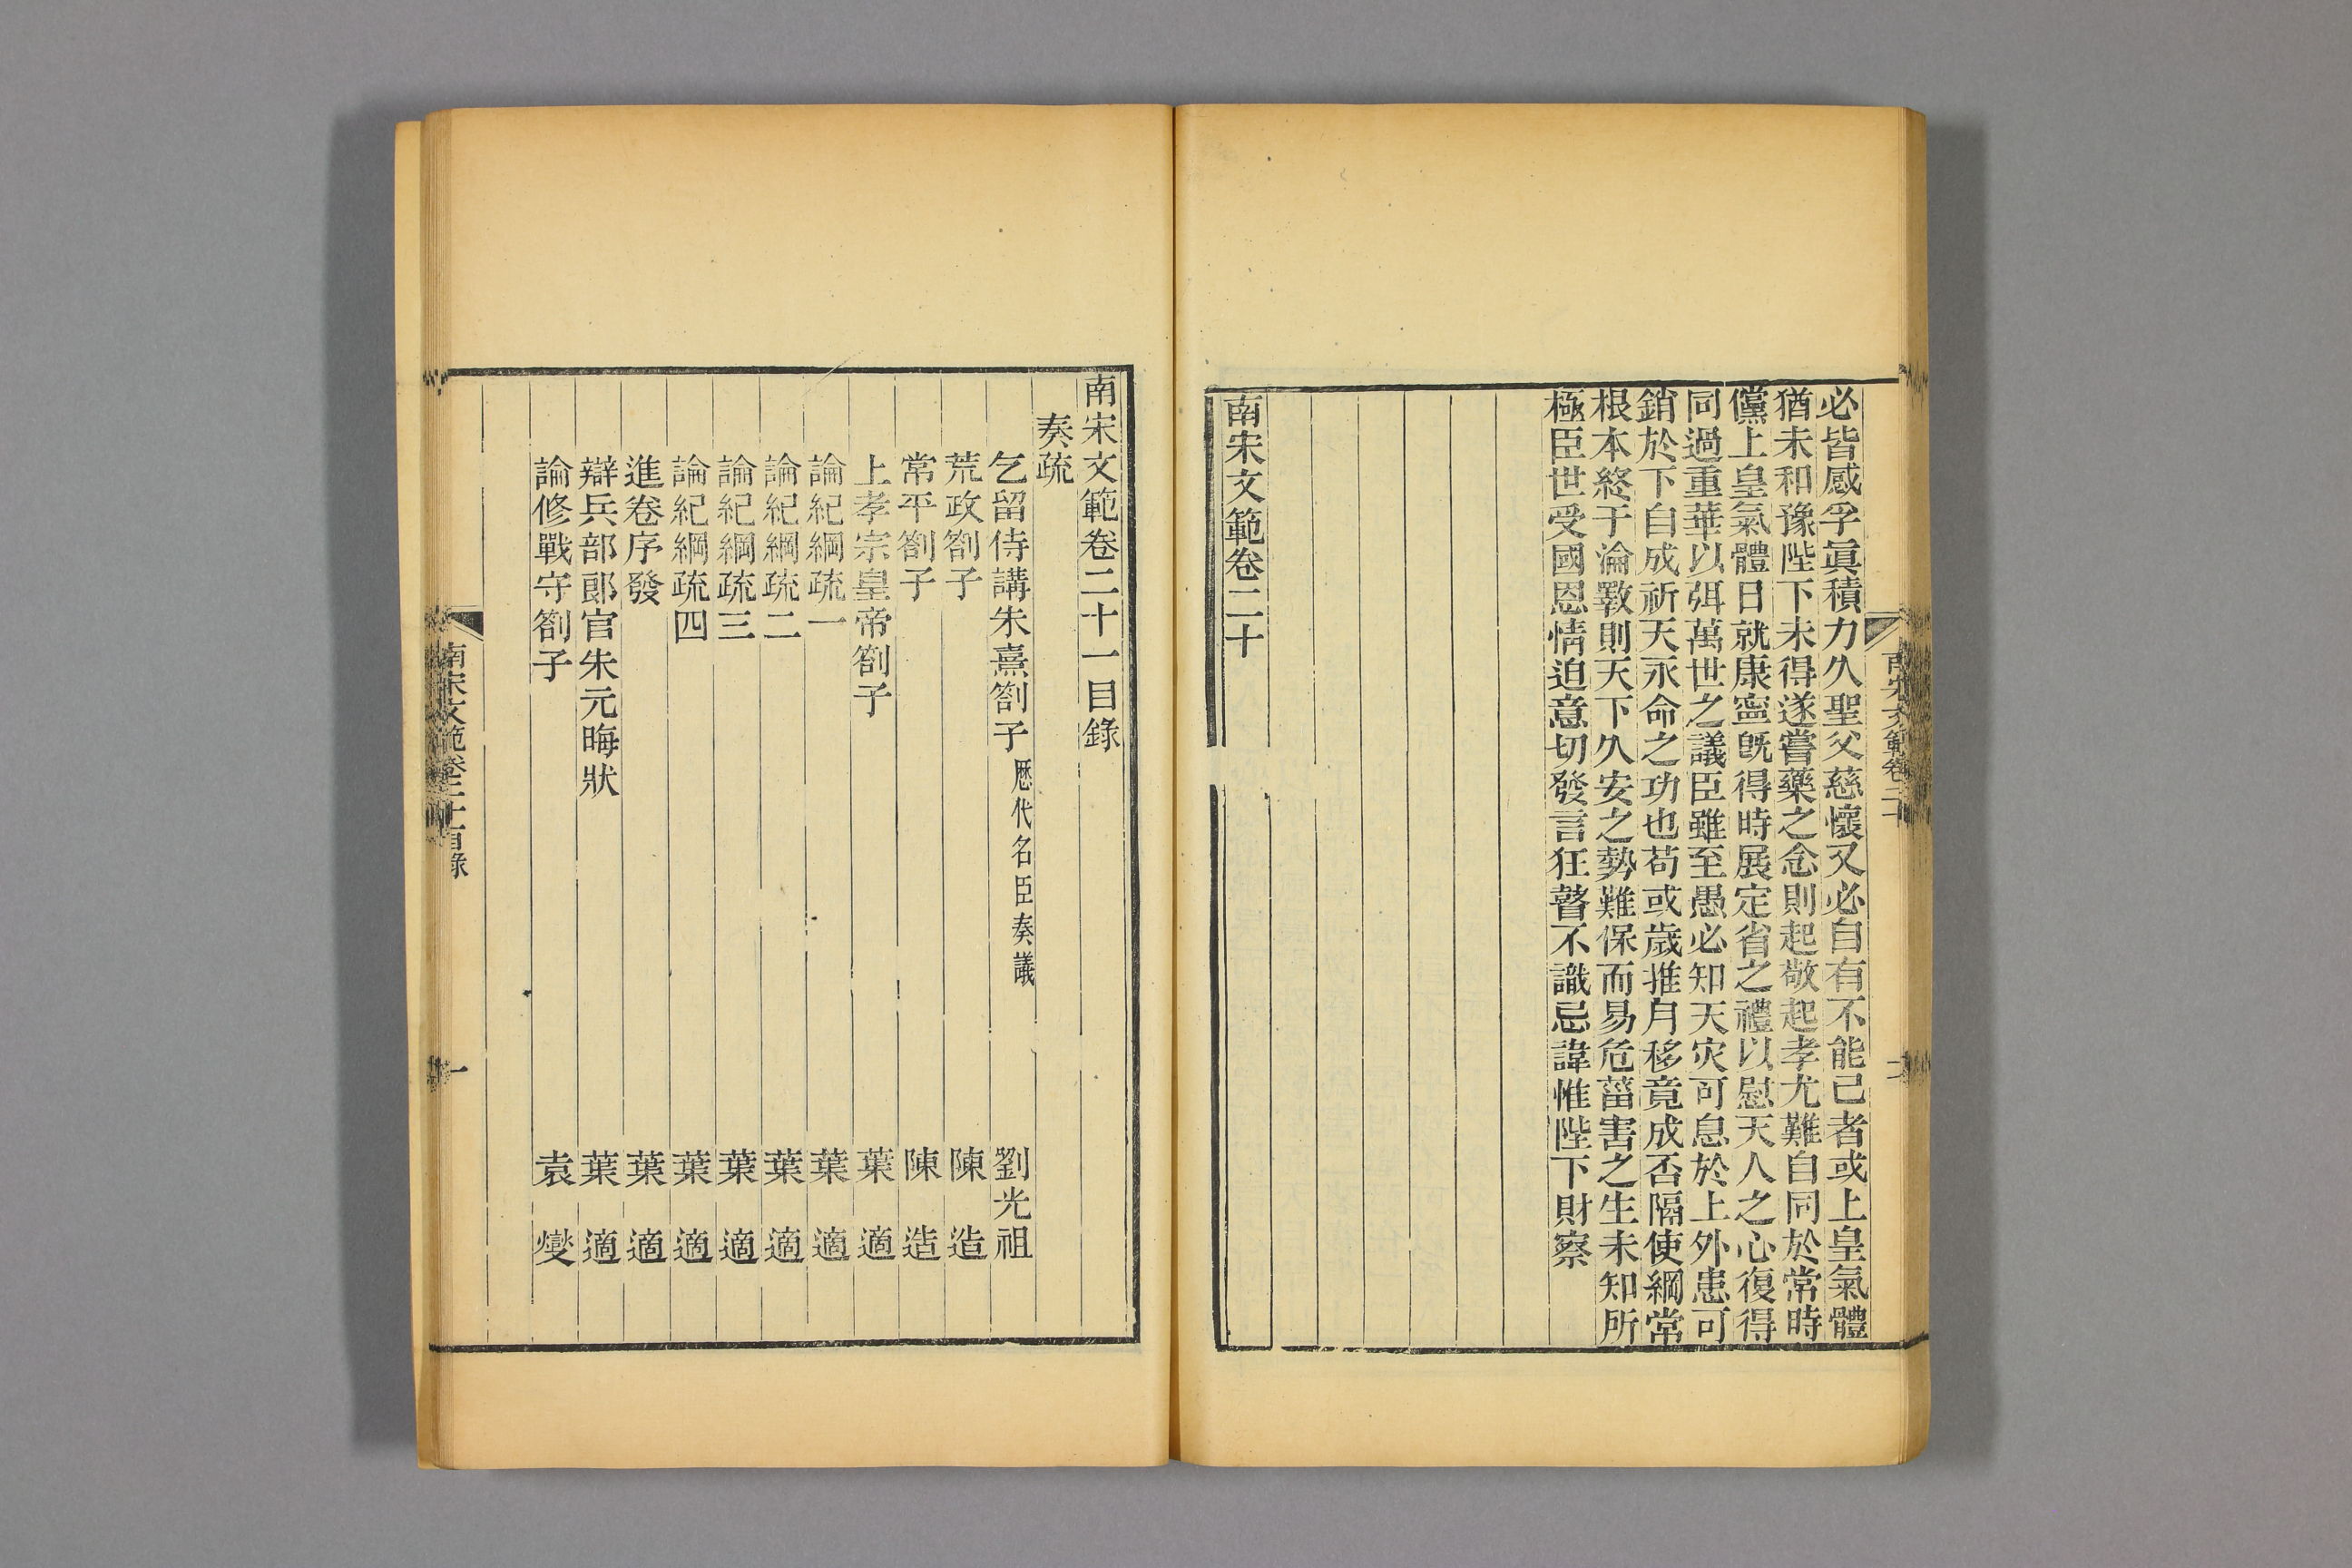 必皆感孚眞積力久聖父慈懷又必自有不能已者或上皇氣體
猶未和豫陛下未得遂嘗藥之念則起敬起孝尤難自同於常時
儻上皇氣體日就康寧旣得時展定省之禮以慰天人之心復得
同過重華以弭萬世之議臣雖至愚必知天灾可息於上外患可
銷於下自成祈天永命之功也苟或歲推月移竟成否隔使綱常
根本終于淪斁則天下久安之勢難保而易危菑害之生未知所
極臣世受國恩情迫意切發言狂瞽不識忌諱惟陛下財察
南宋文範卷二十
南宋文範卷二十一目錄
奏疏
乞留侍講朱熹劄子 歷代名臣奏議 劉光祖
荒政劄子 陳造
常平劄子 陳造
上孝宗皇帝劄子 葉適
論紀綱疏一 葉適
論紀綱疏二 葉適
論紀綱疏三 葉適
論紀綱疏四 葉適
進卷序發 葉適
辯兵部郞官朱元晦狀 葉適
論修戰守劄子 袁燮
南宋文範卷二十一目錄
一